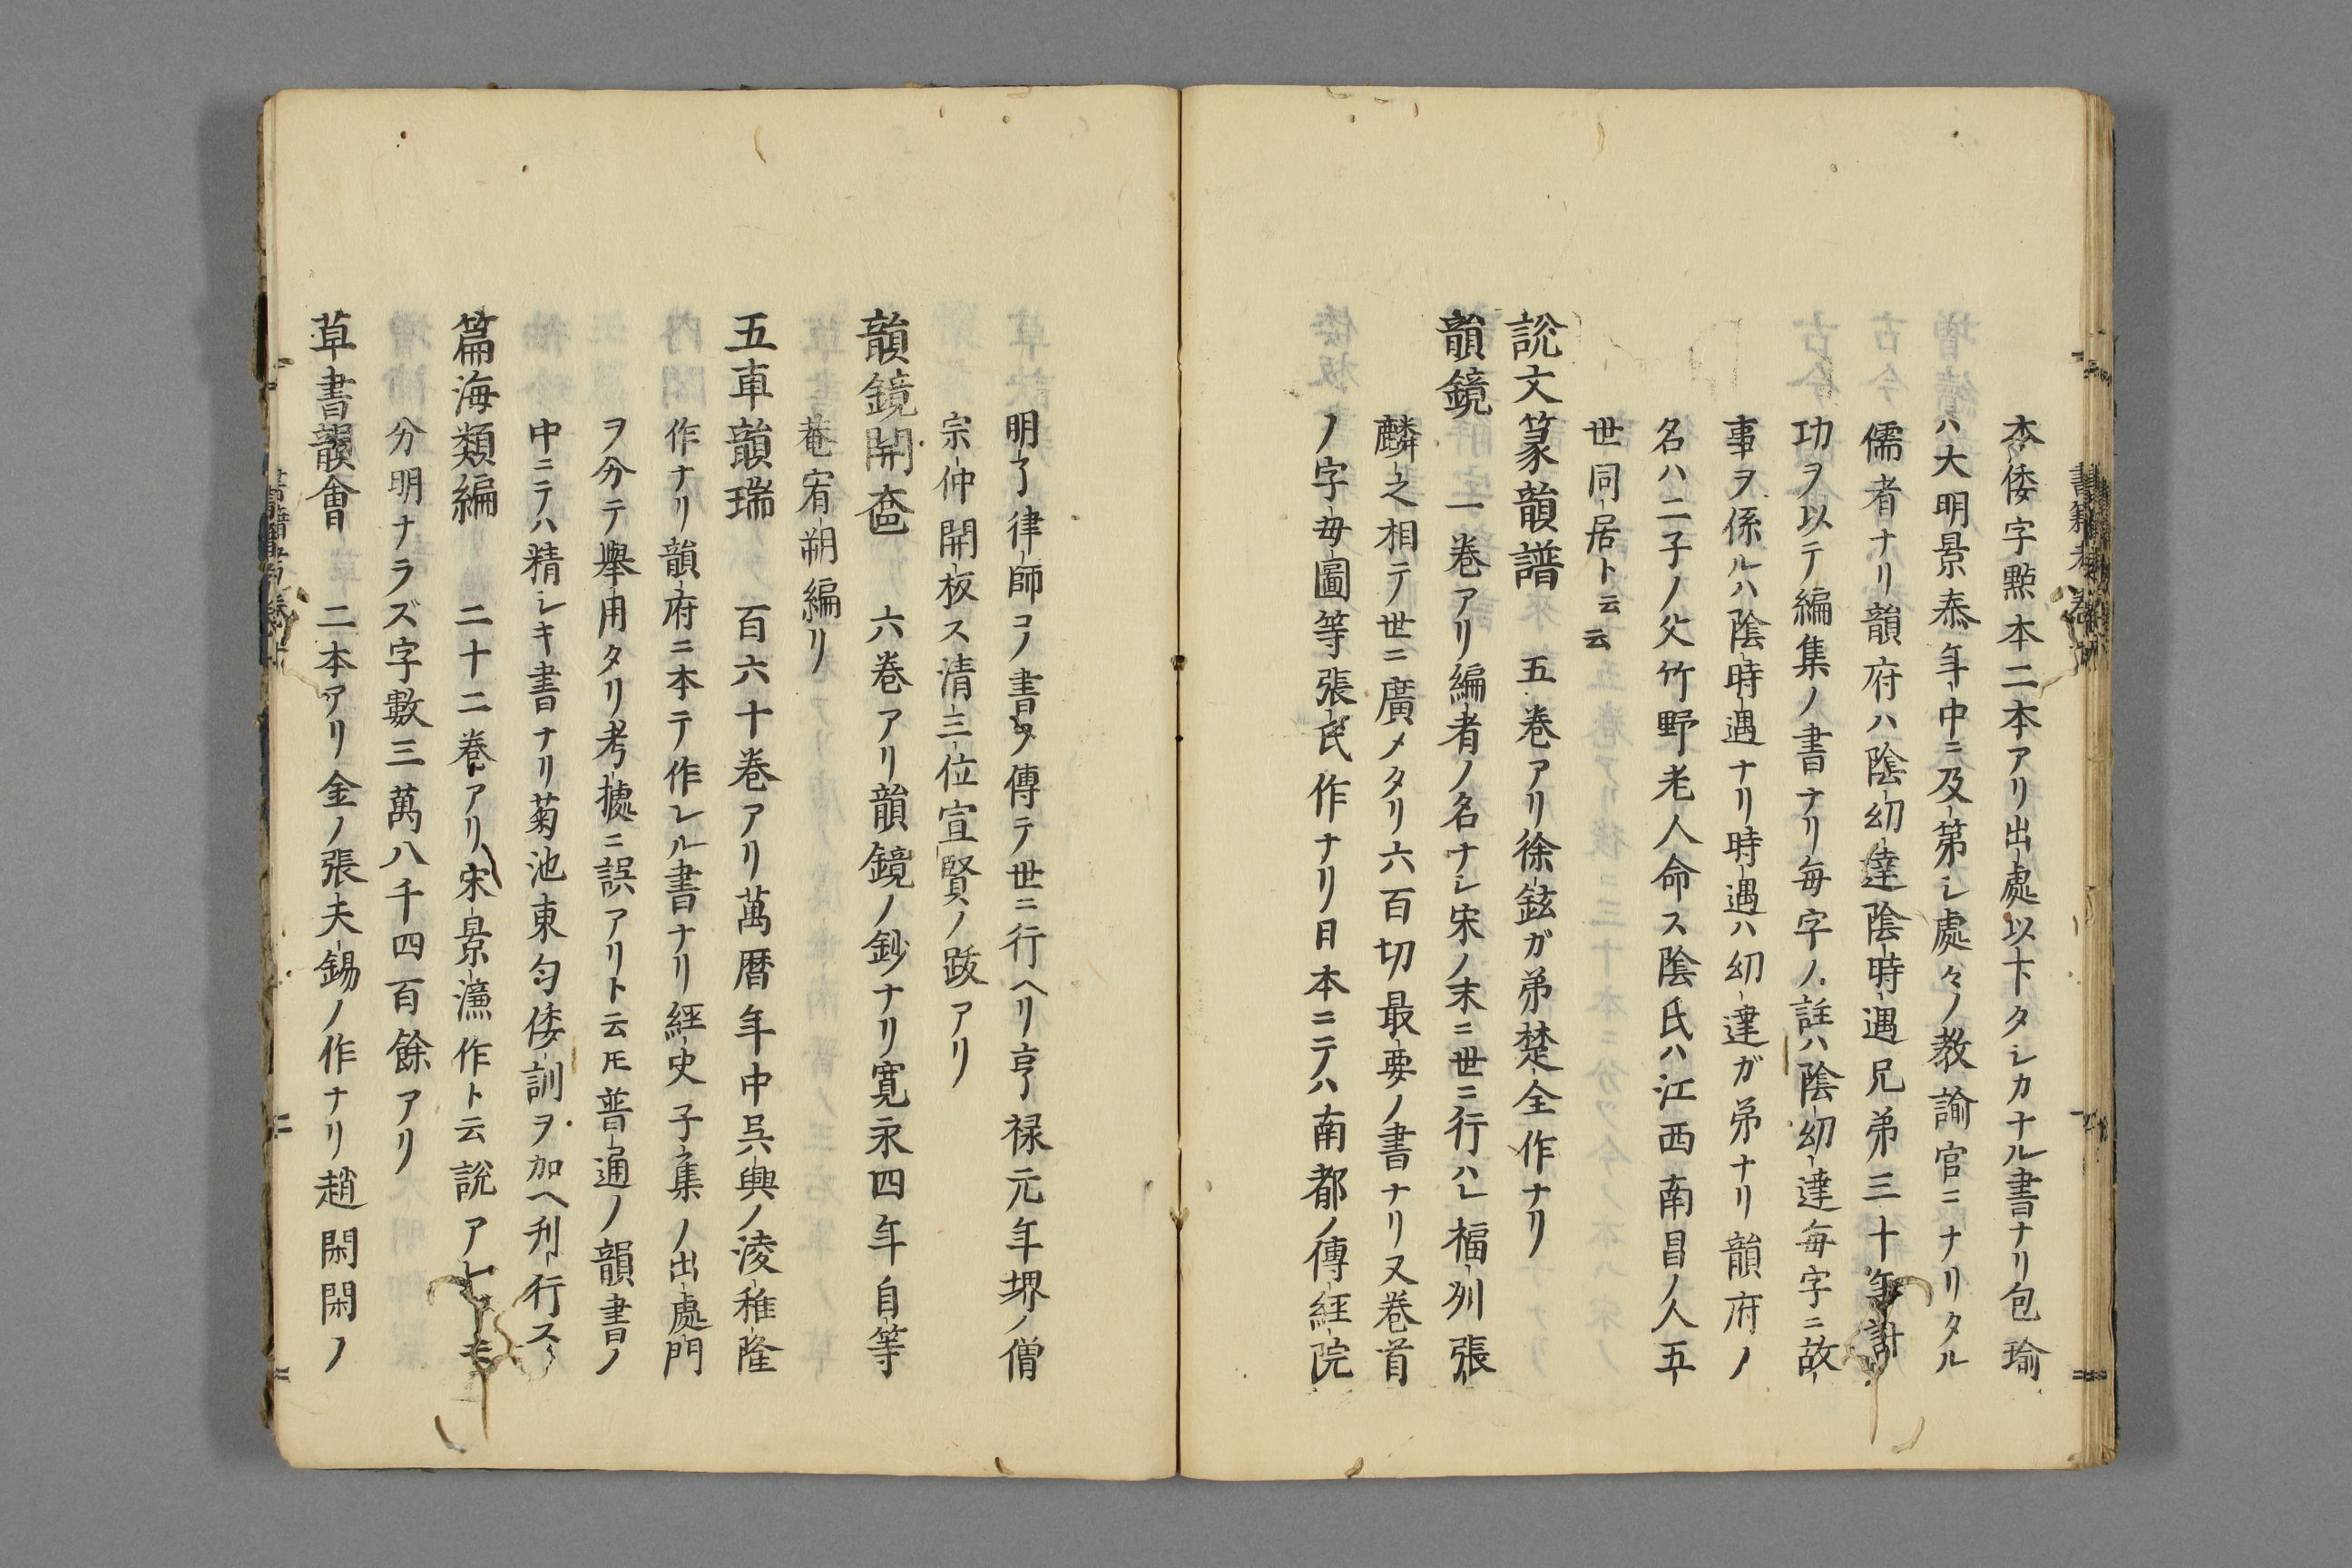 本倭字㸃本二本アリ出處以下タシカナル書ナリ包瑜
ハ大明景泰年中ニ及第シ處々ノ教諭官ニナリタル
儒者ナリ韻府ハ陰幼達陰時遇兄弟三十年計
功ヲ以テ編集ノ書ナリ毎字ノ註ハ陰幼達毎字ニ故
事ヲ係ルハ陰時遇ナリ時遇ハ幼達ガ弟ナリ韻府ノ
名ハ二子ノ父竹野老人命ス陰氏ハ江西南昌ノ人五
世同居ト云云
說文篆韻譜 五巻アリ徐鉉ガ弟楚全作ナリ
韻鏡 一巻アリ編者ノ名ナシ宋ノ末ニ世ニ行ハレ福州張
麟之相テ世ニ廣メタリ六百切最要ノ書ナリ又巻首
ノ字母圖等張氏作ナリ日本ニテハ南都ノ傳經院
明了律師コノ書ヲ傳テ世ニ行ヘリ亨禄元年堺ノ僧
宗仲開板ス清三位宣賢ノ跋アリ
韻鏡開奩 六巻アリ韻鏡ノ鈔ナリ寛永四年自等
菴宥朔編リ
五車韻瑞 百六十巻アリ萬暦年中呉興ノ淩稚隆
作ナリ韻府ニ本テ作レル書ナリ經史子集ノ出處門
ヲ分テ舉用タリ考據ニ誤アリト云𪜈普通ノ韻書ノ
中ニテハ精シキ書ナリ菊池東匀倭訓ヲ加ヘ刋行ス
篇海類編 二十二巻アリ宋景濂作ト云說ア
分明ナラズ字數三萬八千四百餘アリ
草書韻會 二本アリ金ノ張夫錫ノ作ナリ趙閑閑ノ